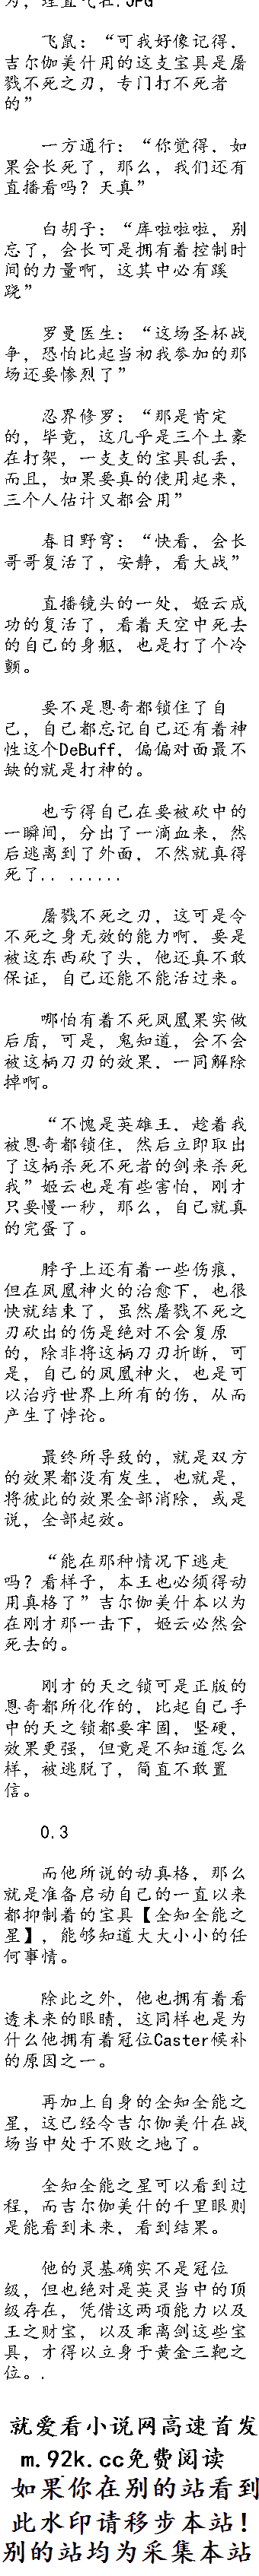 为，理直气壮.JPG
飞鼠：“可我好像记得，
吉尔伽美什用的这支宝具是屠
戮不死之刃，专门打不死者
的”
一方通行：“你觉得，如
果会长死了，那么，我们还有
直播看吗？天真”
白胡子：“库啦啦啦，别
忘了，会长可是拥有着控制时
间的力量啊，这其中必有蹊
跷”
罗曼医生：“这场圣杯战
争，恐怕比起当初我参加的那
场还要惨烈了”
忍界修罗：“那是肯定
的，毕竟，这几乎是三个土豪
在打架，一支支的宝具乱丢，
而且，如果要真的使用起来，
三个人估计又都会用”
春日野穹：“快看，会长
哥哥复活了，安静，看大战”
直播镜头的一处，姬云成
功的复活了，看着天空中死去
的自己的身躯，也是打了个冷
颤。
要不是恩奇都锁住了自
己，自己都忘记自己还有着神
性这个DeBuff，偏偏对面最不
缺的就是打神的。
也亏得自己在要被砍中的
一瞬间，分出了一滴血来，然
后逃离到了外面，不然就真得
死了.. ......
屠戮不死之刃，这可是令
不死之身无效的能力啊，要是
被这东西砍了头，他还真不敢
保证，自己还能不能活过来。
哪怕有着不死凤凰果实做
后盾，可是，鬼知道，会不会
被这柄刀刃的效果，一同解除
掉啊。
“不愧是英雄王，趁着我
被恩奇都锁住，然后立即取出
了这柄杀死不死者的剑来杀死
我”姬云也是有些害怕，刚才
只要慢一秒，那么，自己就真
的完蛋了。
脖子上还有着一些伤痕，
但在凤凰神火的治愈下，也很
快就结束了，虽然屠戮不死之
刃砍出的伤是绝对不会复原
的，除非将这柄刀刃折断，可
是，自己的凤凰神火，也是可
以治疗世界上所有的伤，从而
产生了悖论。
最终所导致的，就是双方
的效果都没有发生，也就是，
将彼此的效果全部消除，或是
说，全部起效。
“能在那种情况下逃走
吗？看样子，本王也必须得动
用真格了”吉尔伽美什本以为
在刚才那一击下，姬云必然会
死去的。
刚才的天之锁可是正版的
恩奇都所化作的，比起自己手
中的天之锁都要牢固，坚硬，
效果更强，但竟是不知道怎么
样，被逃脱了，简直不敢置
信。
0.3
而他所说的动真格，那么
就是准备启动自己的一直以来
都抑制着的宝具【全知全能之
星】，能够知道大大小小的任
何事情。
除此之外，他也拥有着看
透未来的眼睛，这同样也是为
什么他拥有着冠位Caster候补
的原因之一。
再加上自身的全知全能之
星，这已经令吉尔伽美什在战
场当中处于不败之地了。
全知全能之星可以看到过
程，而吉尔伽美什的千里眼则
是能看到未来，看到结果。
他的灵基确实不是冠位
级，但也绝对是英灵当中的顶
级存在，凭借这两项能力以及
王之财宝，以及乖离剑这些宝
具，才得以立身于黄金三靶之
位。.
就爱看小说网高速首发
m.92k.cc免费阅读
如果你在别的站看到
此水印请移步本站！
别的站均为采集本站